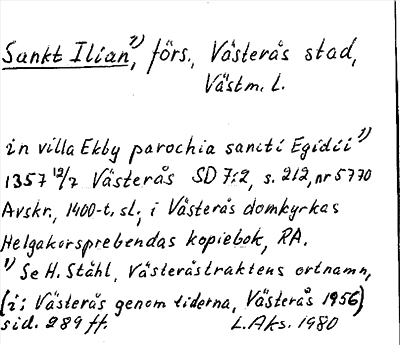 Sankt Ilian,¹⁾ förs., Västerås stad,
Västm. L.
in villa Ekby parochia sancti Egidii ¹⁾
1357 12/7 Västerås SD 7:2, s. 212, nr 5770
Avskr., 1400-t. sl., i Västerås domkyrkas
Helgakorsprebendas kopiebok, RA.
¹⁾ Se H. Ståhl, Västeråstraktens ortnamn,
(i: Västerås genom tiderna, Västerås 1956)
sid. 289 ff. L. Aks. 1980